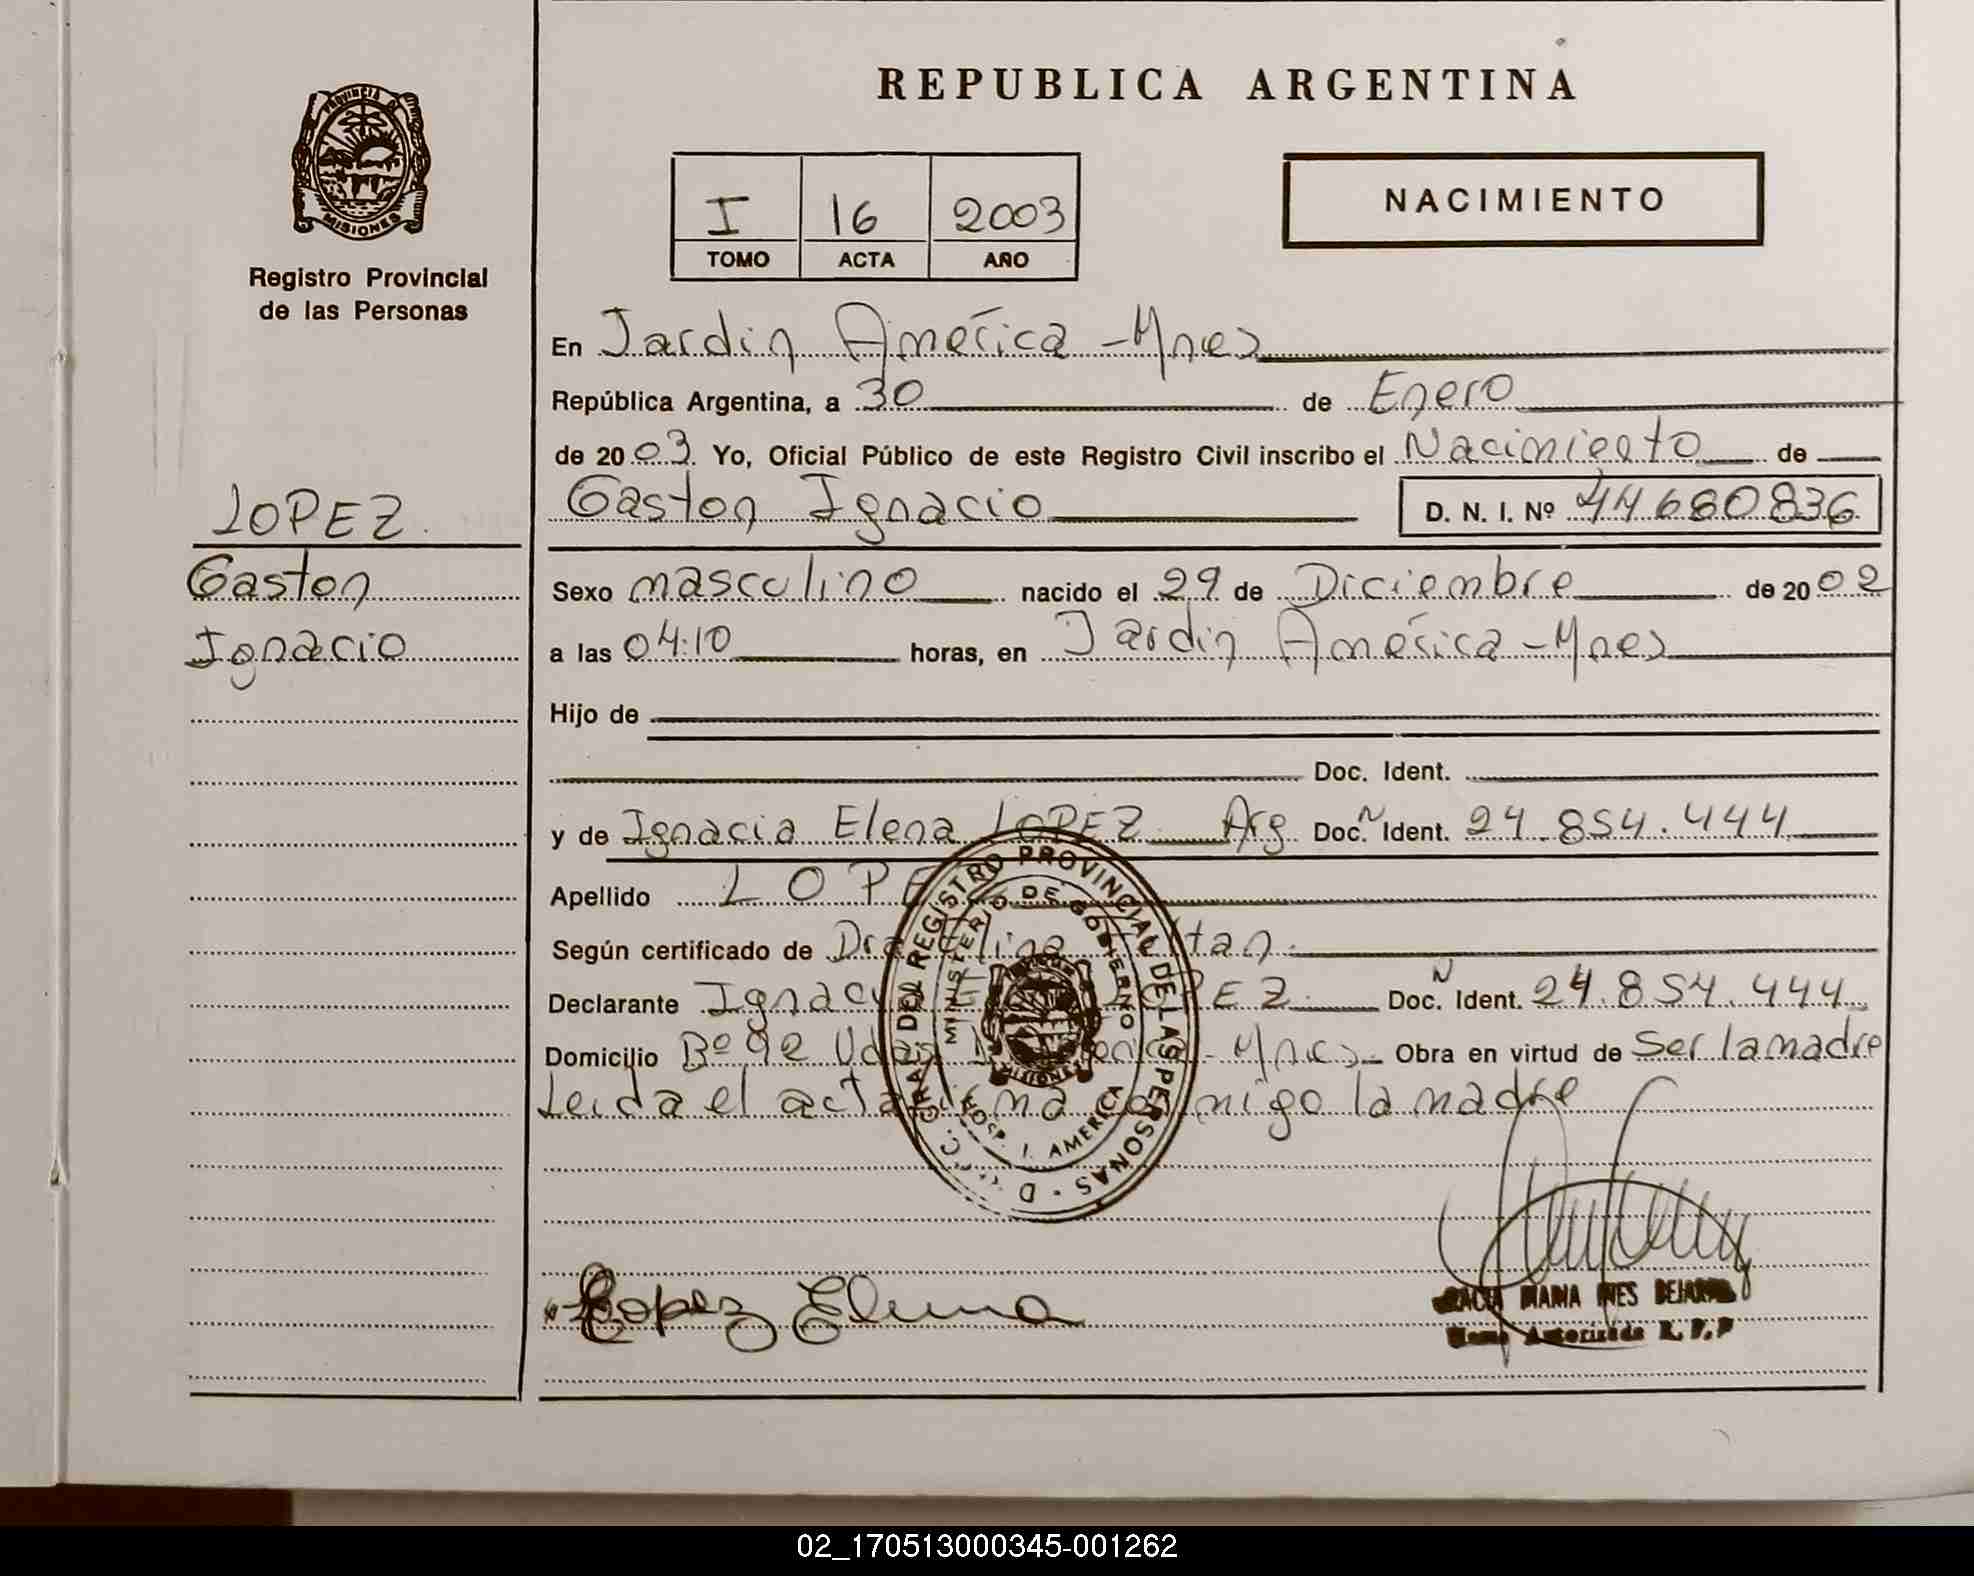 REPUBLICA ARGENTINA
PROVINCIA DE
MISIONES
Registro Provincial
de las Personas
I 16 2003
TOMO ACTA AÑO
NACIMIENTO
En Jardin América - Mnes
República Argentina, a 30 de Enero
de 2003 Yo, Oficial Público de este Registro Civil inscribo el Nacimiento de
LOPEZ.
Gaston Ignacio D. N. I. Nº 44680836
Gaston
Sexo masculino nacido el 29 de Diciembre de 2002
Ignacio
a las 04:10 horas, en Jardin América - Mnes
Hijo de
Doc. Ident.
y de Ignacia Elena LOPEZ Arg Doc. N Ident. 24.854.444
Apellido LOPE
Según certificado de Dra
Declarante Ignac PEZ Doc. N Ident. 24.854.444
Domicilio Bº 92 - Mnes - Obra en virtud de Ser la madre
Leida el acta conmigo la madre
DEL REGISTRO PROVINCIAL DE LAS PERSONAS
MINISTERIO DE GOBIERNO
MISIONES
HOSP. J. AMERICA
Lopez Elena
MARIA INES
Autorizada R. P. P
02_170513000345-001262